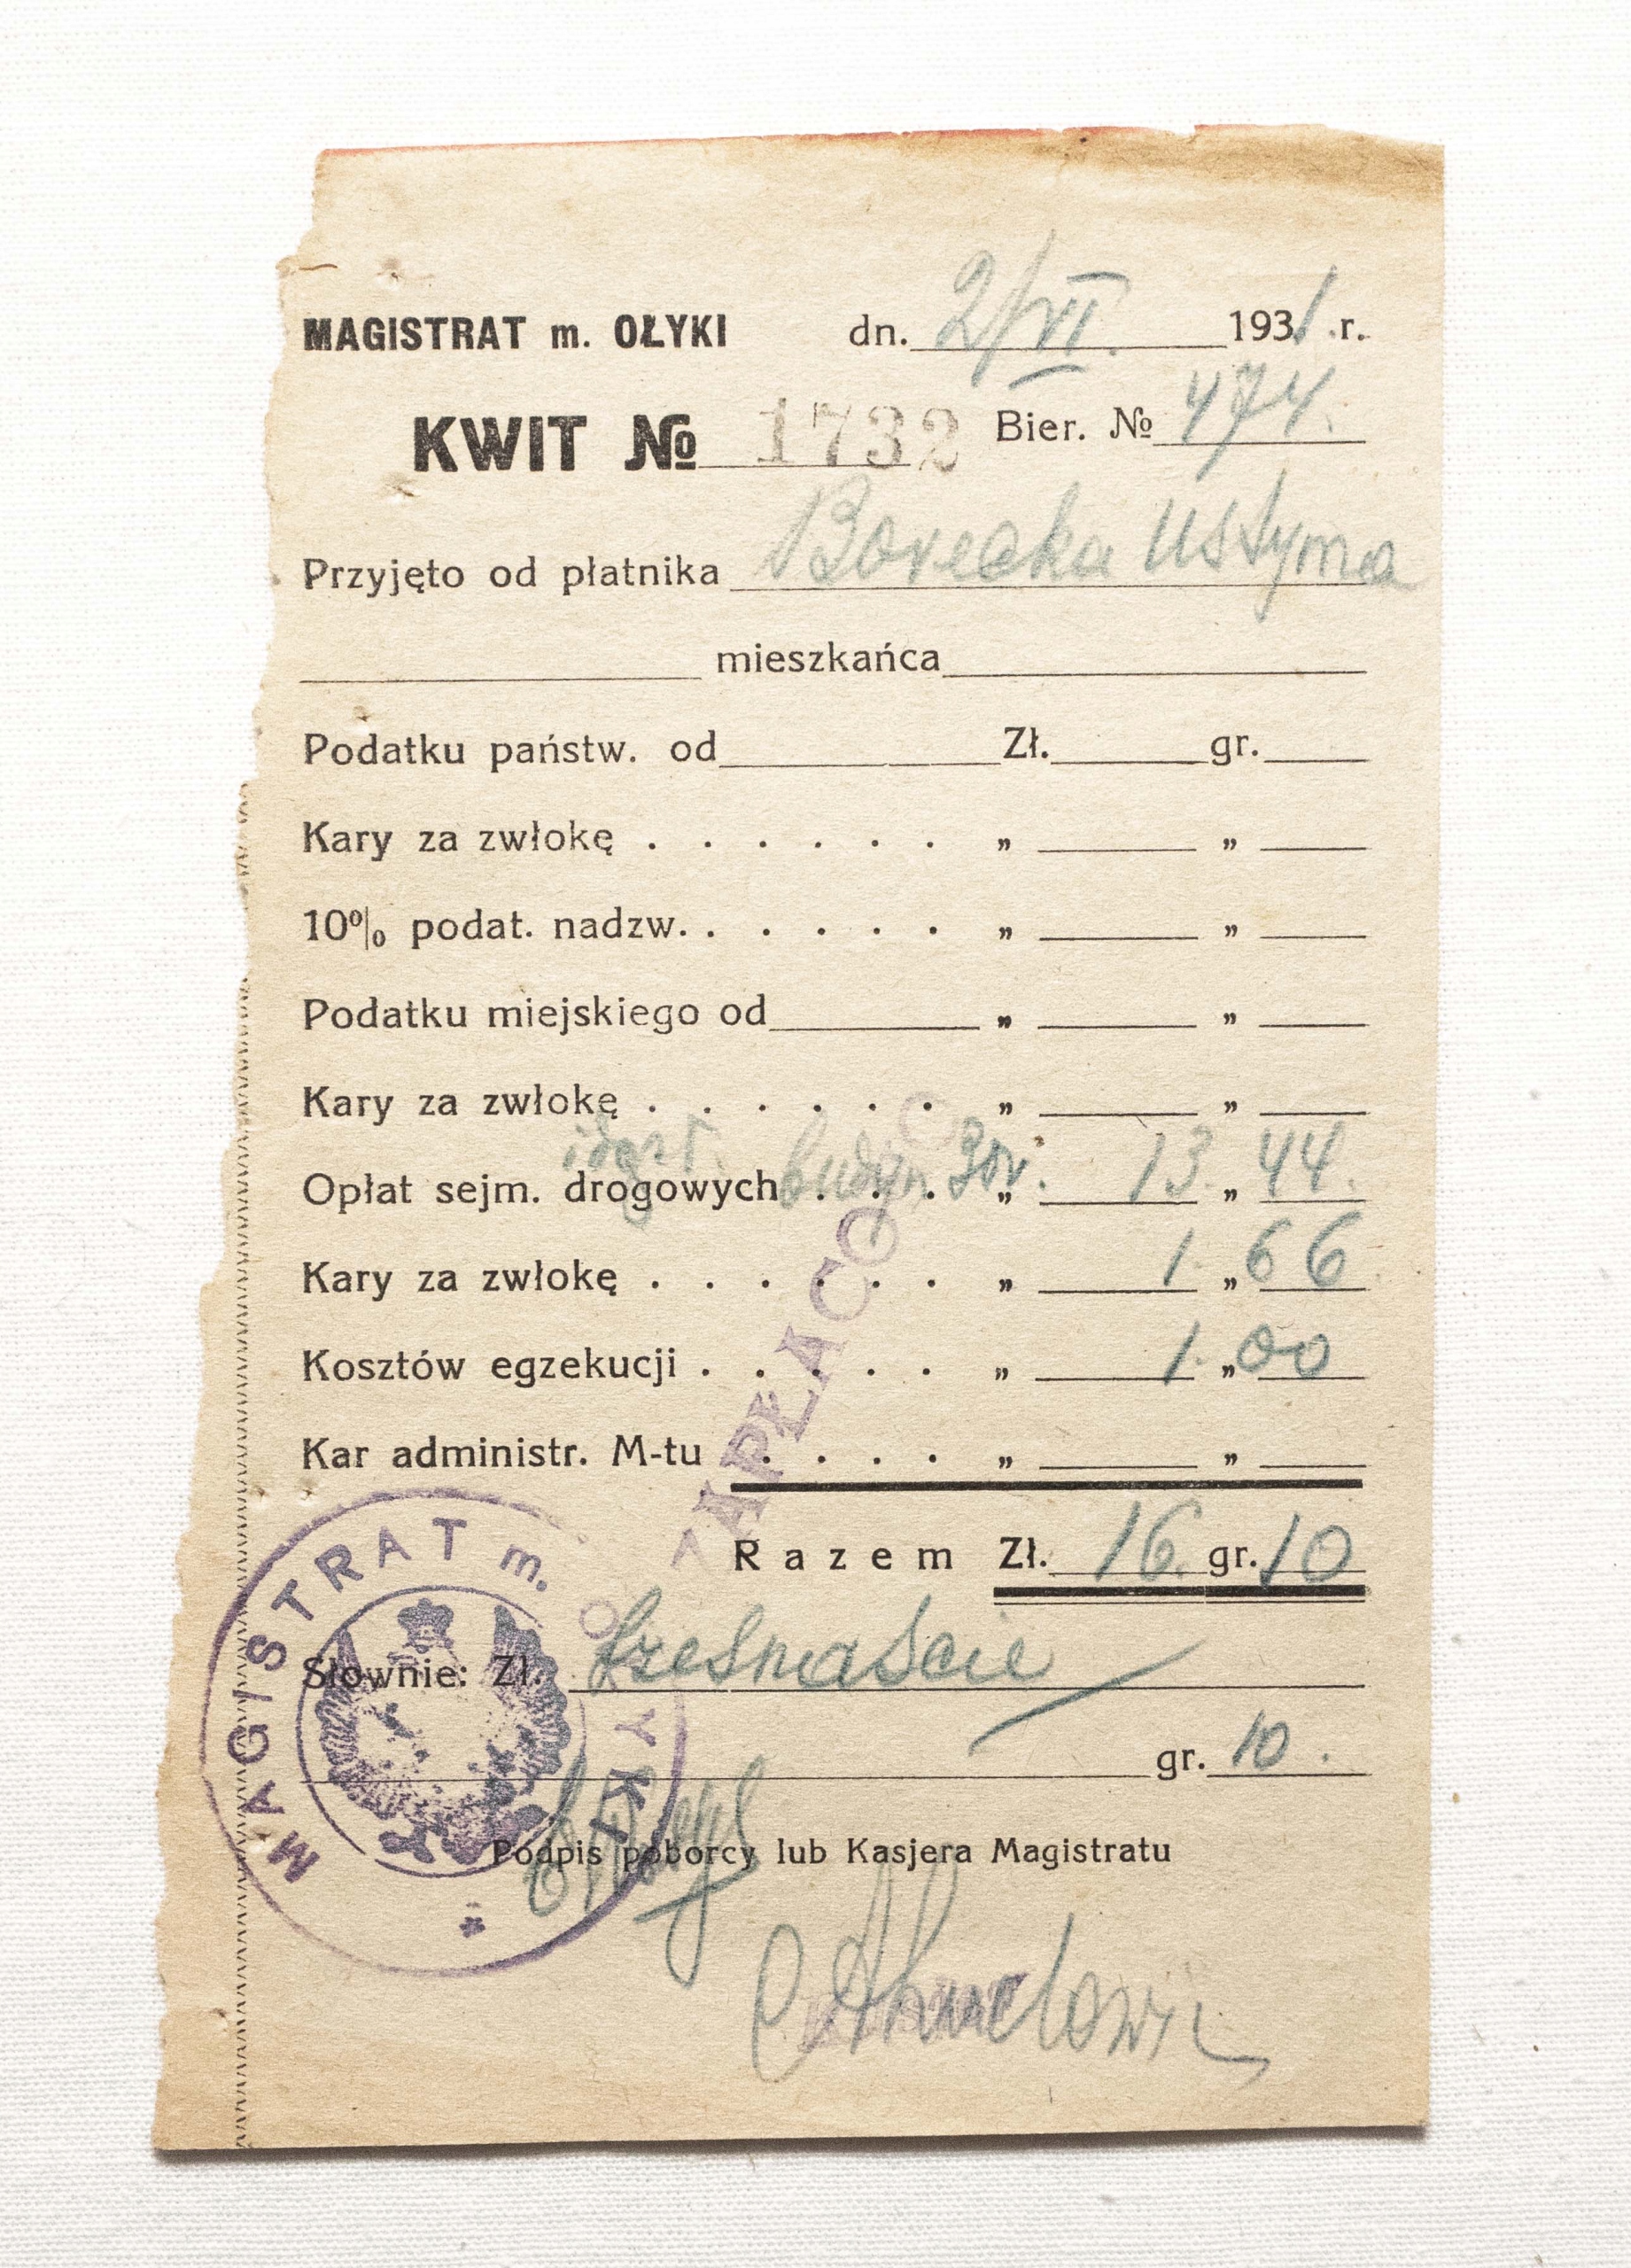 MAGISTRAT m. OŁYKI dn. 2/VI. 1931 r.
KWIT № 1732 Bier. № 474.
Przyjęto od płatnika Borecka Ustyma
mieszkańca
Podatku państw. od Zł. gr.
Kary za zwłokę . . . . . . „ „
10% podat. nadzw. . . . . . „ „
Podatku miejskiego od „ „
Kary za zwłokę . . . . . . „ „
Opłat sejm. drogowych . . . „ 13. „ 44.
Kary za zwłokę . . . . . . „ 1. „ 66
Kosztów egzekucji . . . . . „ 1. „ 00
Kar administr. M-tu . . . . „ „
ZAPŁACONO
Razem Zł. 16. gr. 10
Słownie: Zł. szesnaście
gr. 10.
Podpis poborcy lub Kasjera Magistratu
MAGISTRAT m. OŁYKI